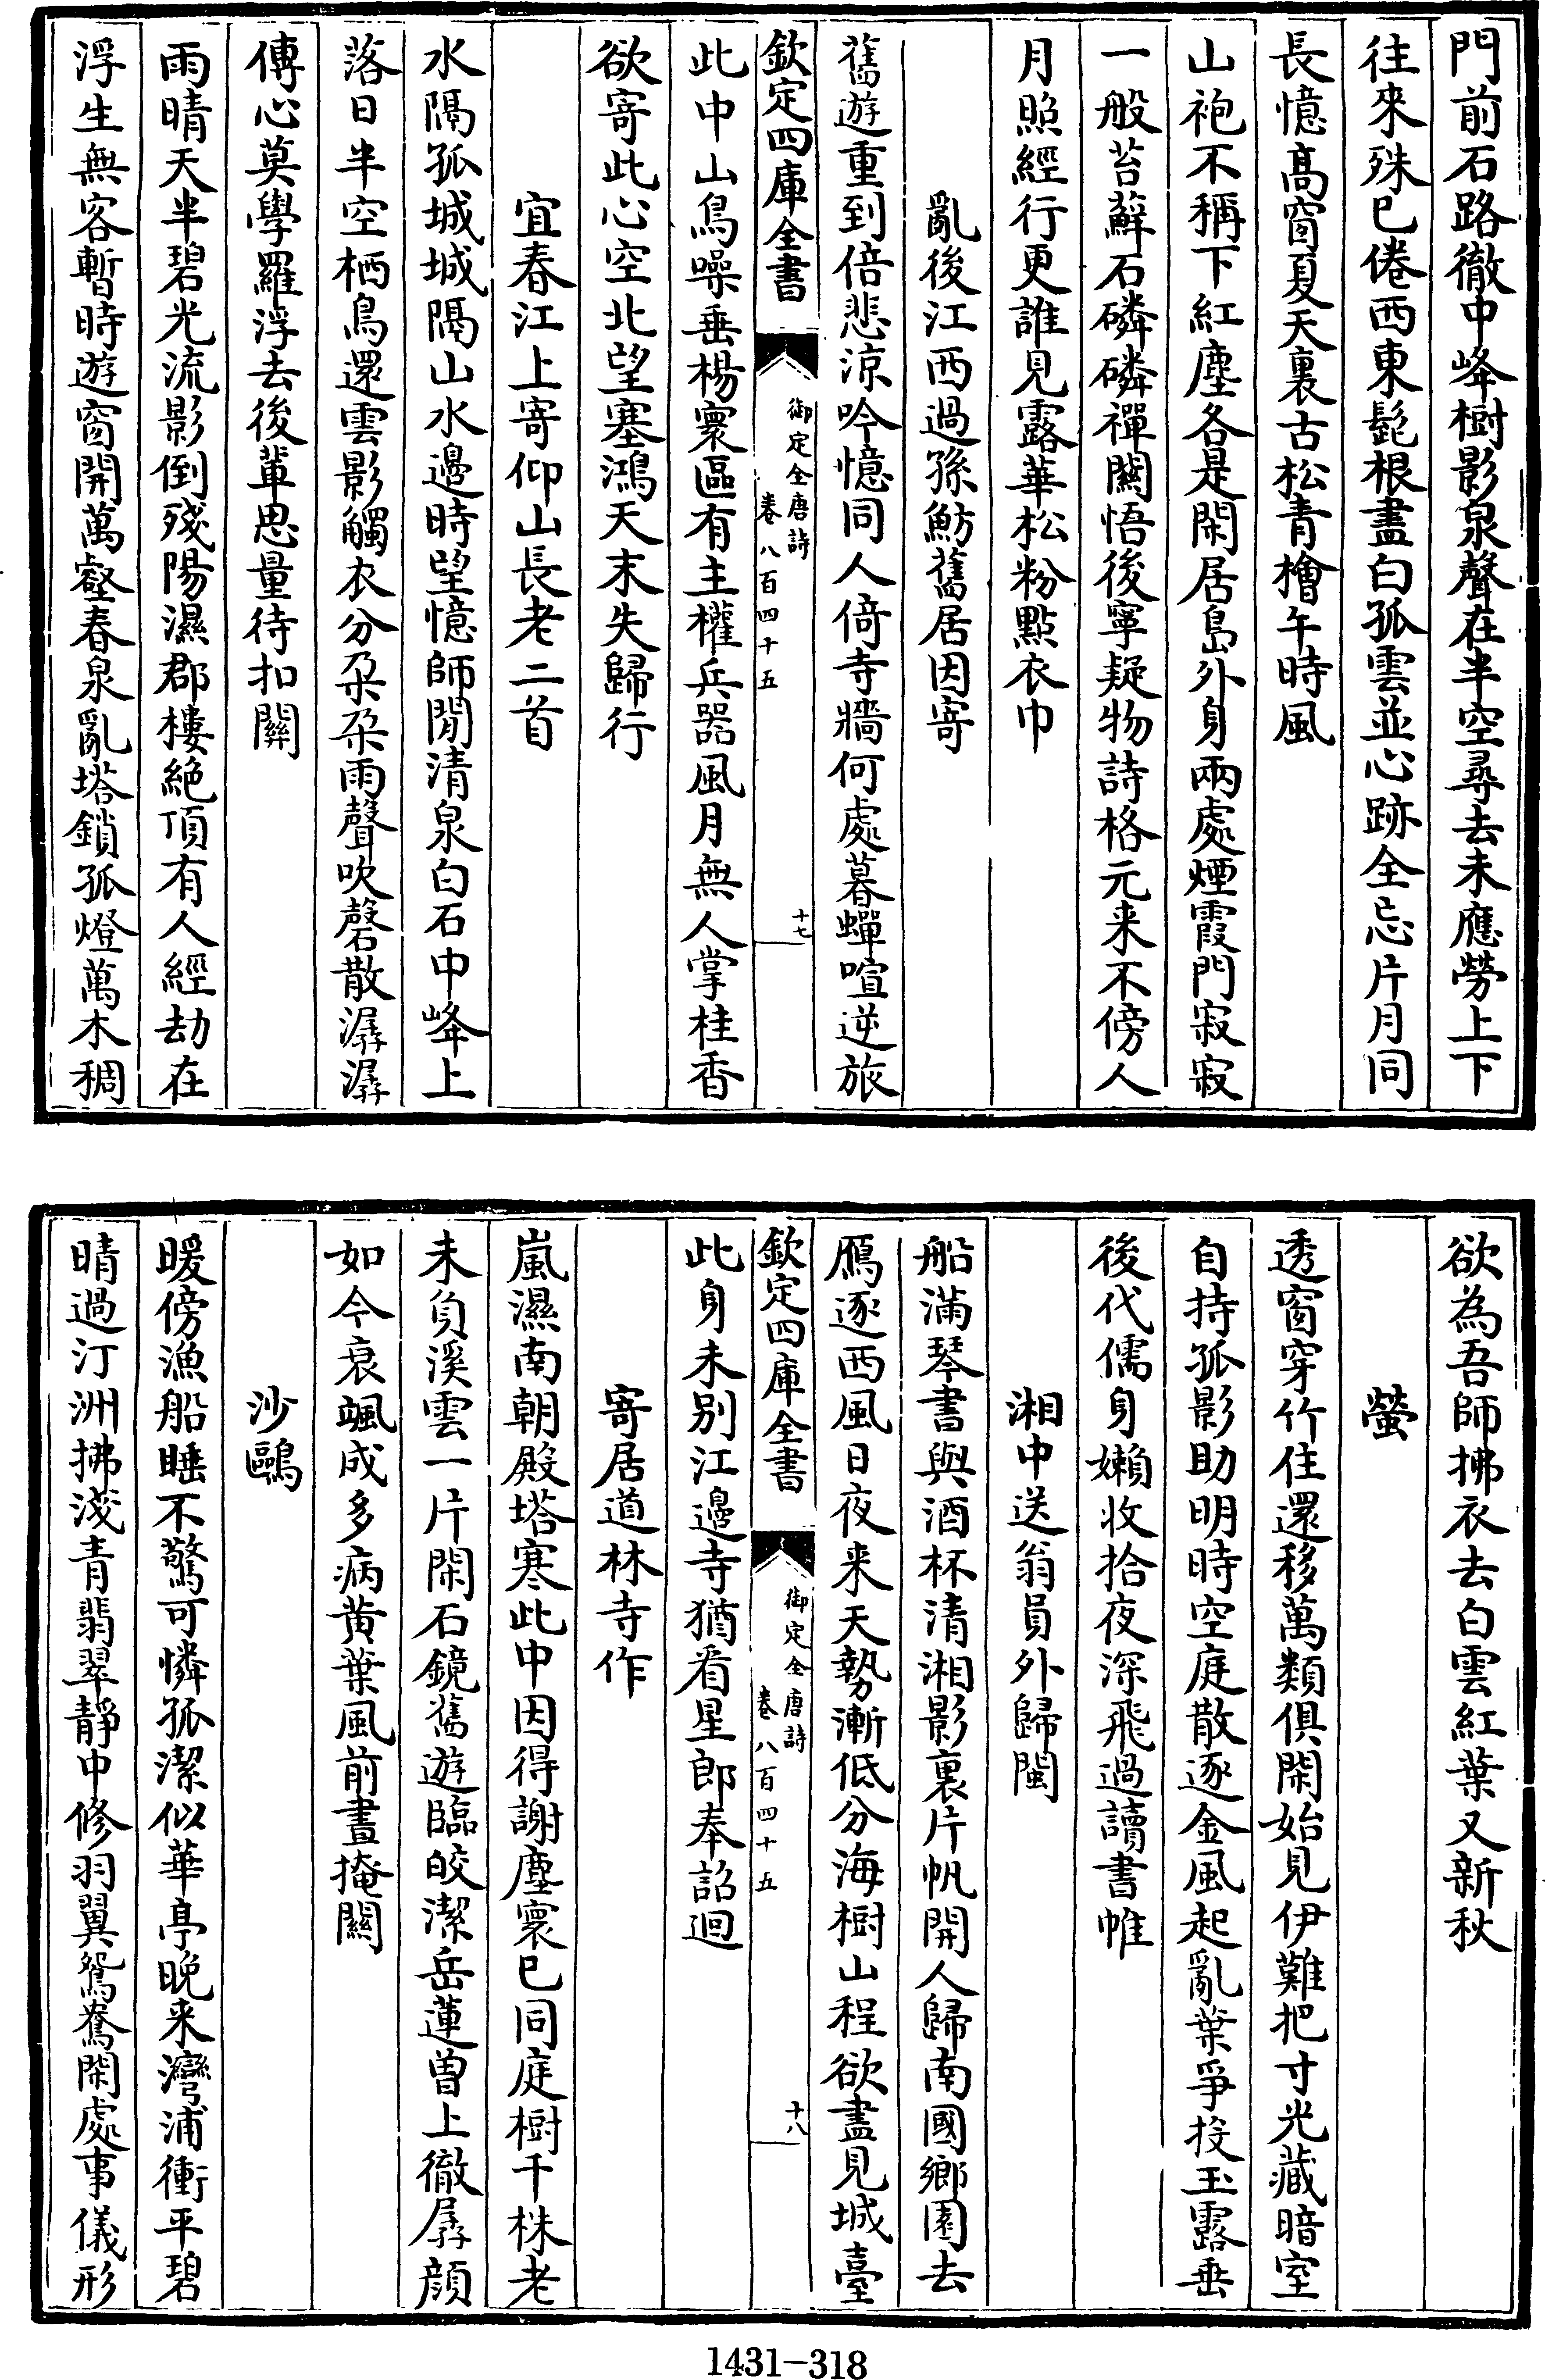 門前石路徹中峰樹影泉聲在半空尋去未應勞上下
往來殊已倦西東髭根盡白孤雲並心跡全忘片月同
長憶髙窗夏天裏古松青檜午時風
山袍不稱下紅塵各是閑居島外身兩處煙霞門寂寂
一般苔蘚石磷磷禪關悟後寧疑物詩格元来不傍人
月照經行更誰見露華松粉點衣巾
亂後江西過孫魴舊居因寄
舊遊重到倍悲涼吟憶同人倚寺牆何處暮蟬喧逆旅
欽定四庫全書
御定全唐詩
卷八百四十五
十七
此中山鳥噪垂楊寰區有主權兵器風月無人掌桂香
欲寄此心空北望塞鴻天末失歸行
宜春江上寄仰山長老二首
水隔孤城城隔山水邊時望憶師閒清泉白石中峰上
落日半空栖鳥還雲影觸衣分朶朶雨聲吹磬散潺潺
傳心莫學羅浮去後輩思量待扣關
雨晴天半碧光流影倒殘陽濕郡樓絶頂有人經劫在
浮生無客暫時遊窗開萬壑春泉亂塔鎖孤燈萬木稠
欲為吾師拂衣去白雲紅葉又新秋
螢
透窗穿竹住還移萬類俱閑始見伊難把寸光藏暗室
自持孤影助明時空庭散逐金風起亂葉爭投玉露垂
後代儒身嬾收拾夜深飛過讀書帷
湘中送翁員外歸閩
船滿琴書與酒杯清湘影裏片帆開人歸南國鄉園去
鴈逐西風日夜来天勢漸低分海樹山程欲盡見城臺
欽定四庫全書
御定全唐詩
卷八百四十五
十八
此身未別江邊寺猶看星郎奉詔迴
寄居道林寺作
嵐濕南朝殿塔寒此中因得謝塵寰已同庭樹千株老
未負溪雲一片閑石鏡舊遊臨皎潔岳蓮曽上徹孱顔
如今衰颯成多病黄葉風前晝掩關
沙鷗
暖傍漁船睡不驚可憐孤潔似華亭晚来灣浦衝平碧
晴過汀洲拂淺青翡翠靜中修羽翼鴛鴦閑處事儀形
1431-318